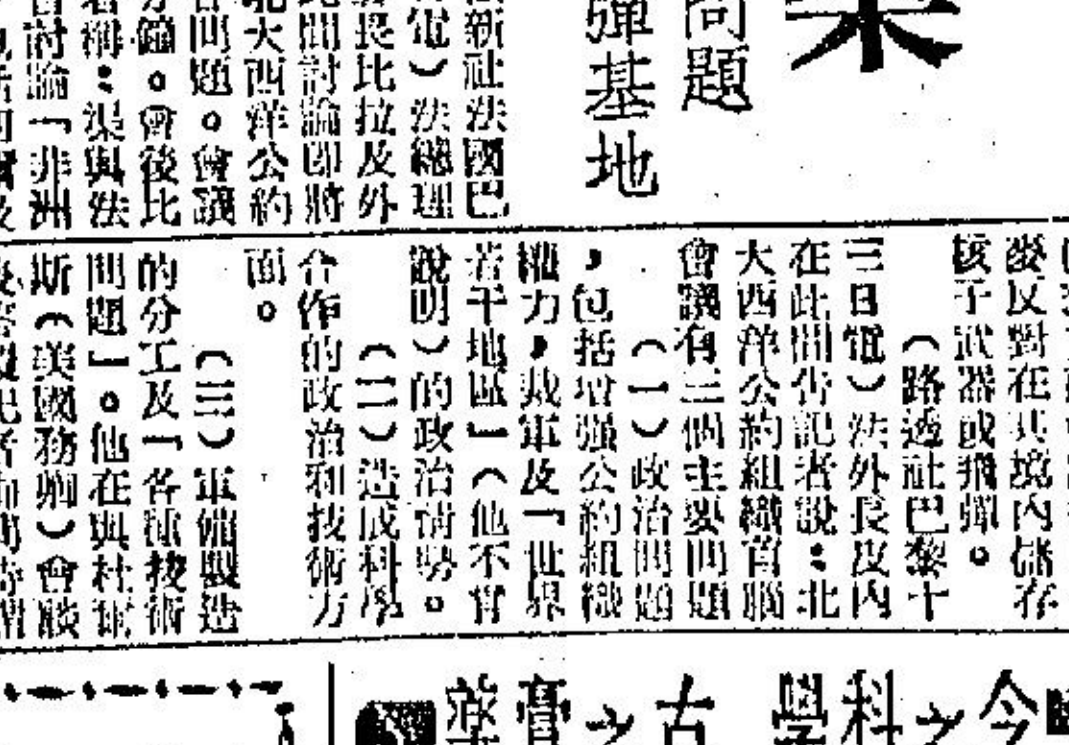 問題
彈基地
新社法國巴
電）法總理
長比拉及外
間討論即將
北大西洋公約
問題。會議
鐘。會後比
稱：渠與法
討論「非洲
麥反對在其境內儲存
核子武器或飛彈。
（路透社巴黎十
三日電）法外長及內
在此間告記者說：北
大西洋公約組織首腦
會議有三個主要問題
（一）政治問題
，包括增强公約組織
權力，裁軍及「世界
若干地區」（他不肯
說明）的政治情勢。
（二）造成科學
合作的政治和技術方
面。
（三）軍備製造
的分工及「各種技術
問題」。他在與杜爾
斯（美國務卿）會談
今之科學
古之膏藥